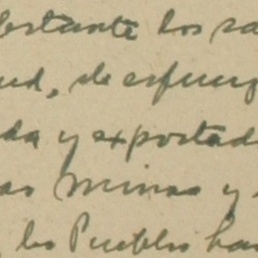 estante los sa
ud, de esfuerz
da y exportad
as minas y
los Pueblos han